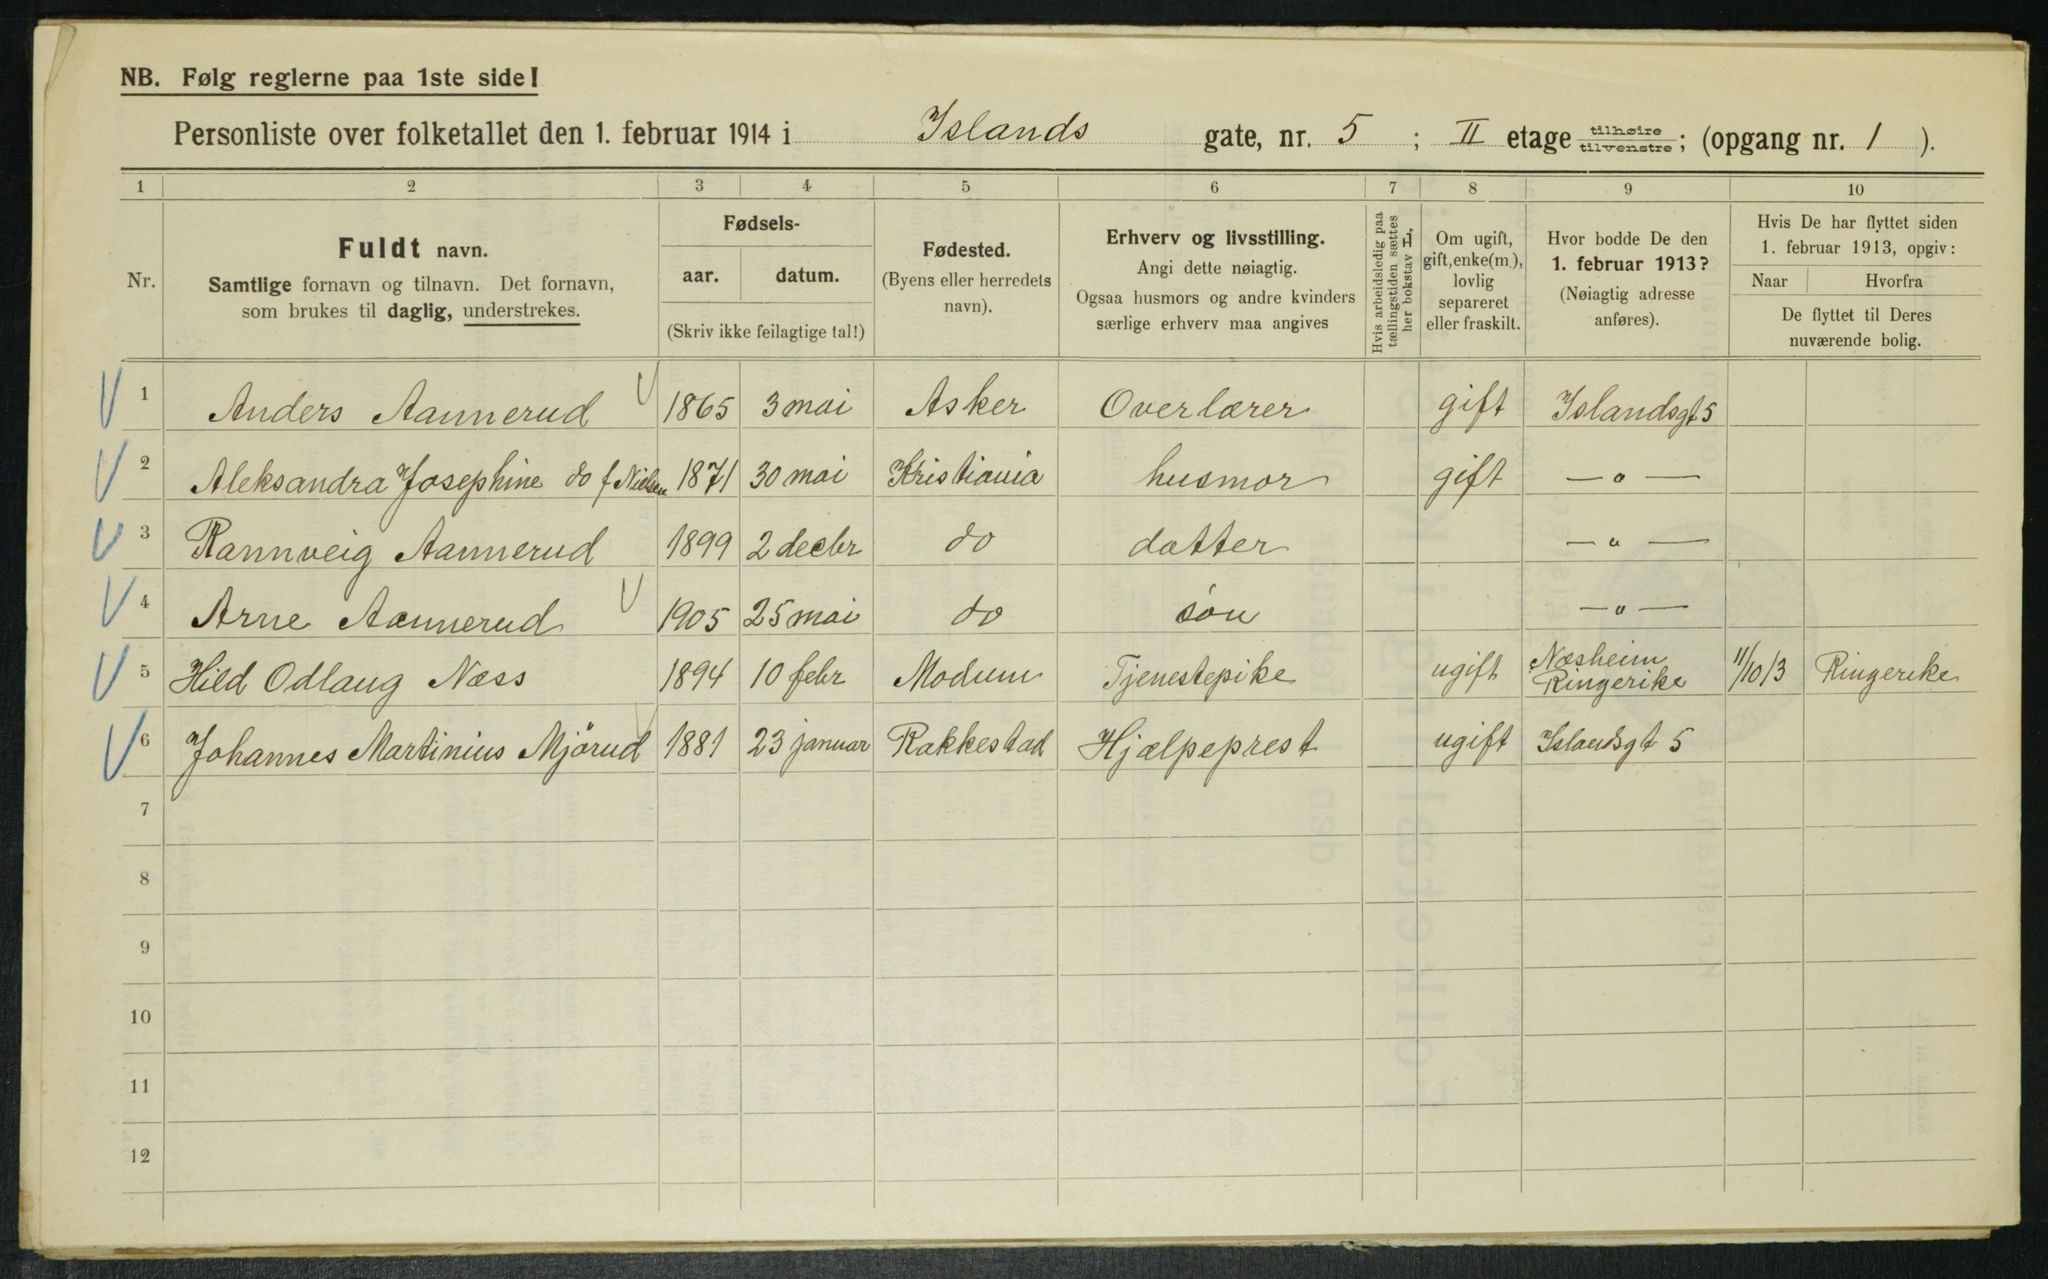 NB. Følg reglerne paa 1ste side!
Personliste over folketallet den 1. februar 1914 i Islands gate, nr. 5 ; II etage tilhøire tilvenstre; (opgang nr. 1 ).
1 2 3 4 5 6 7 8 9 10
Nr.
Fuldt navn.
Samtlige fornavn og tilnavn. Det fornavn,
som brukes til daglig, understrekes.
Fødsels-
aar. datum.
(Skriv ikke feilagtige tal!)
Fødested.
(Byens eller herredets
navn).
Erhverv og livsstilling.
Angi dette nøiagtig.
Ogsaa husmors og andre kvinders
særlige erhverv maa angives
Hvis arbeidsledig paa
tællingstiden sættes
her bokstav L.
Om ugift,
gift, enke(m.),
lovlig
separeret
eller fraskilt.
Hvor bodde De den
1. februar 1913?
(Nøiagtig adresse
anføres).
Hvis De har flyttet siden
1. februar 1913, opgiv:
Naar Hvorfra
De flyttet til Deres
nuværende bolig.
1 Anders Aannerud 1865 3 mai Asker Overlærer gift Islandsgt 5
2 Aleksandra Josephine do f Nielsen 1871 30 mai Kristiania husmor gift — " —
3 Rannveig Aannerud 1899 2 decbr do datter — " —
4 Arne Aannerud 1905 25 mai do søn — " —
5 Hild Odlaug Næss 1894 10 febr Modum Tjenestepike ugift Næsheim Ringerike 11/10 13 Ringerike
6 Johannes Martinius Mjörud 1881 23 januar Rakkestad Hjælpeprest ugift Islandsgt 5
7
8
9
10
11
12